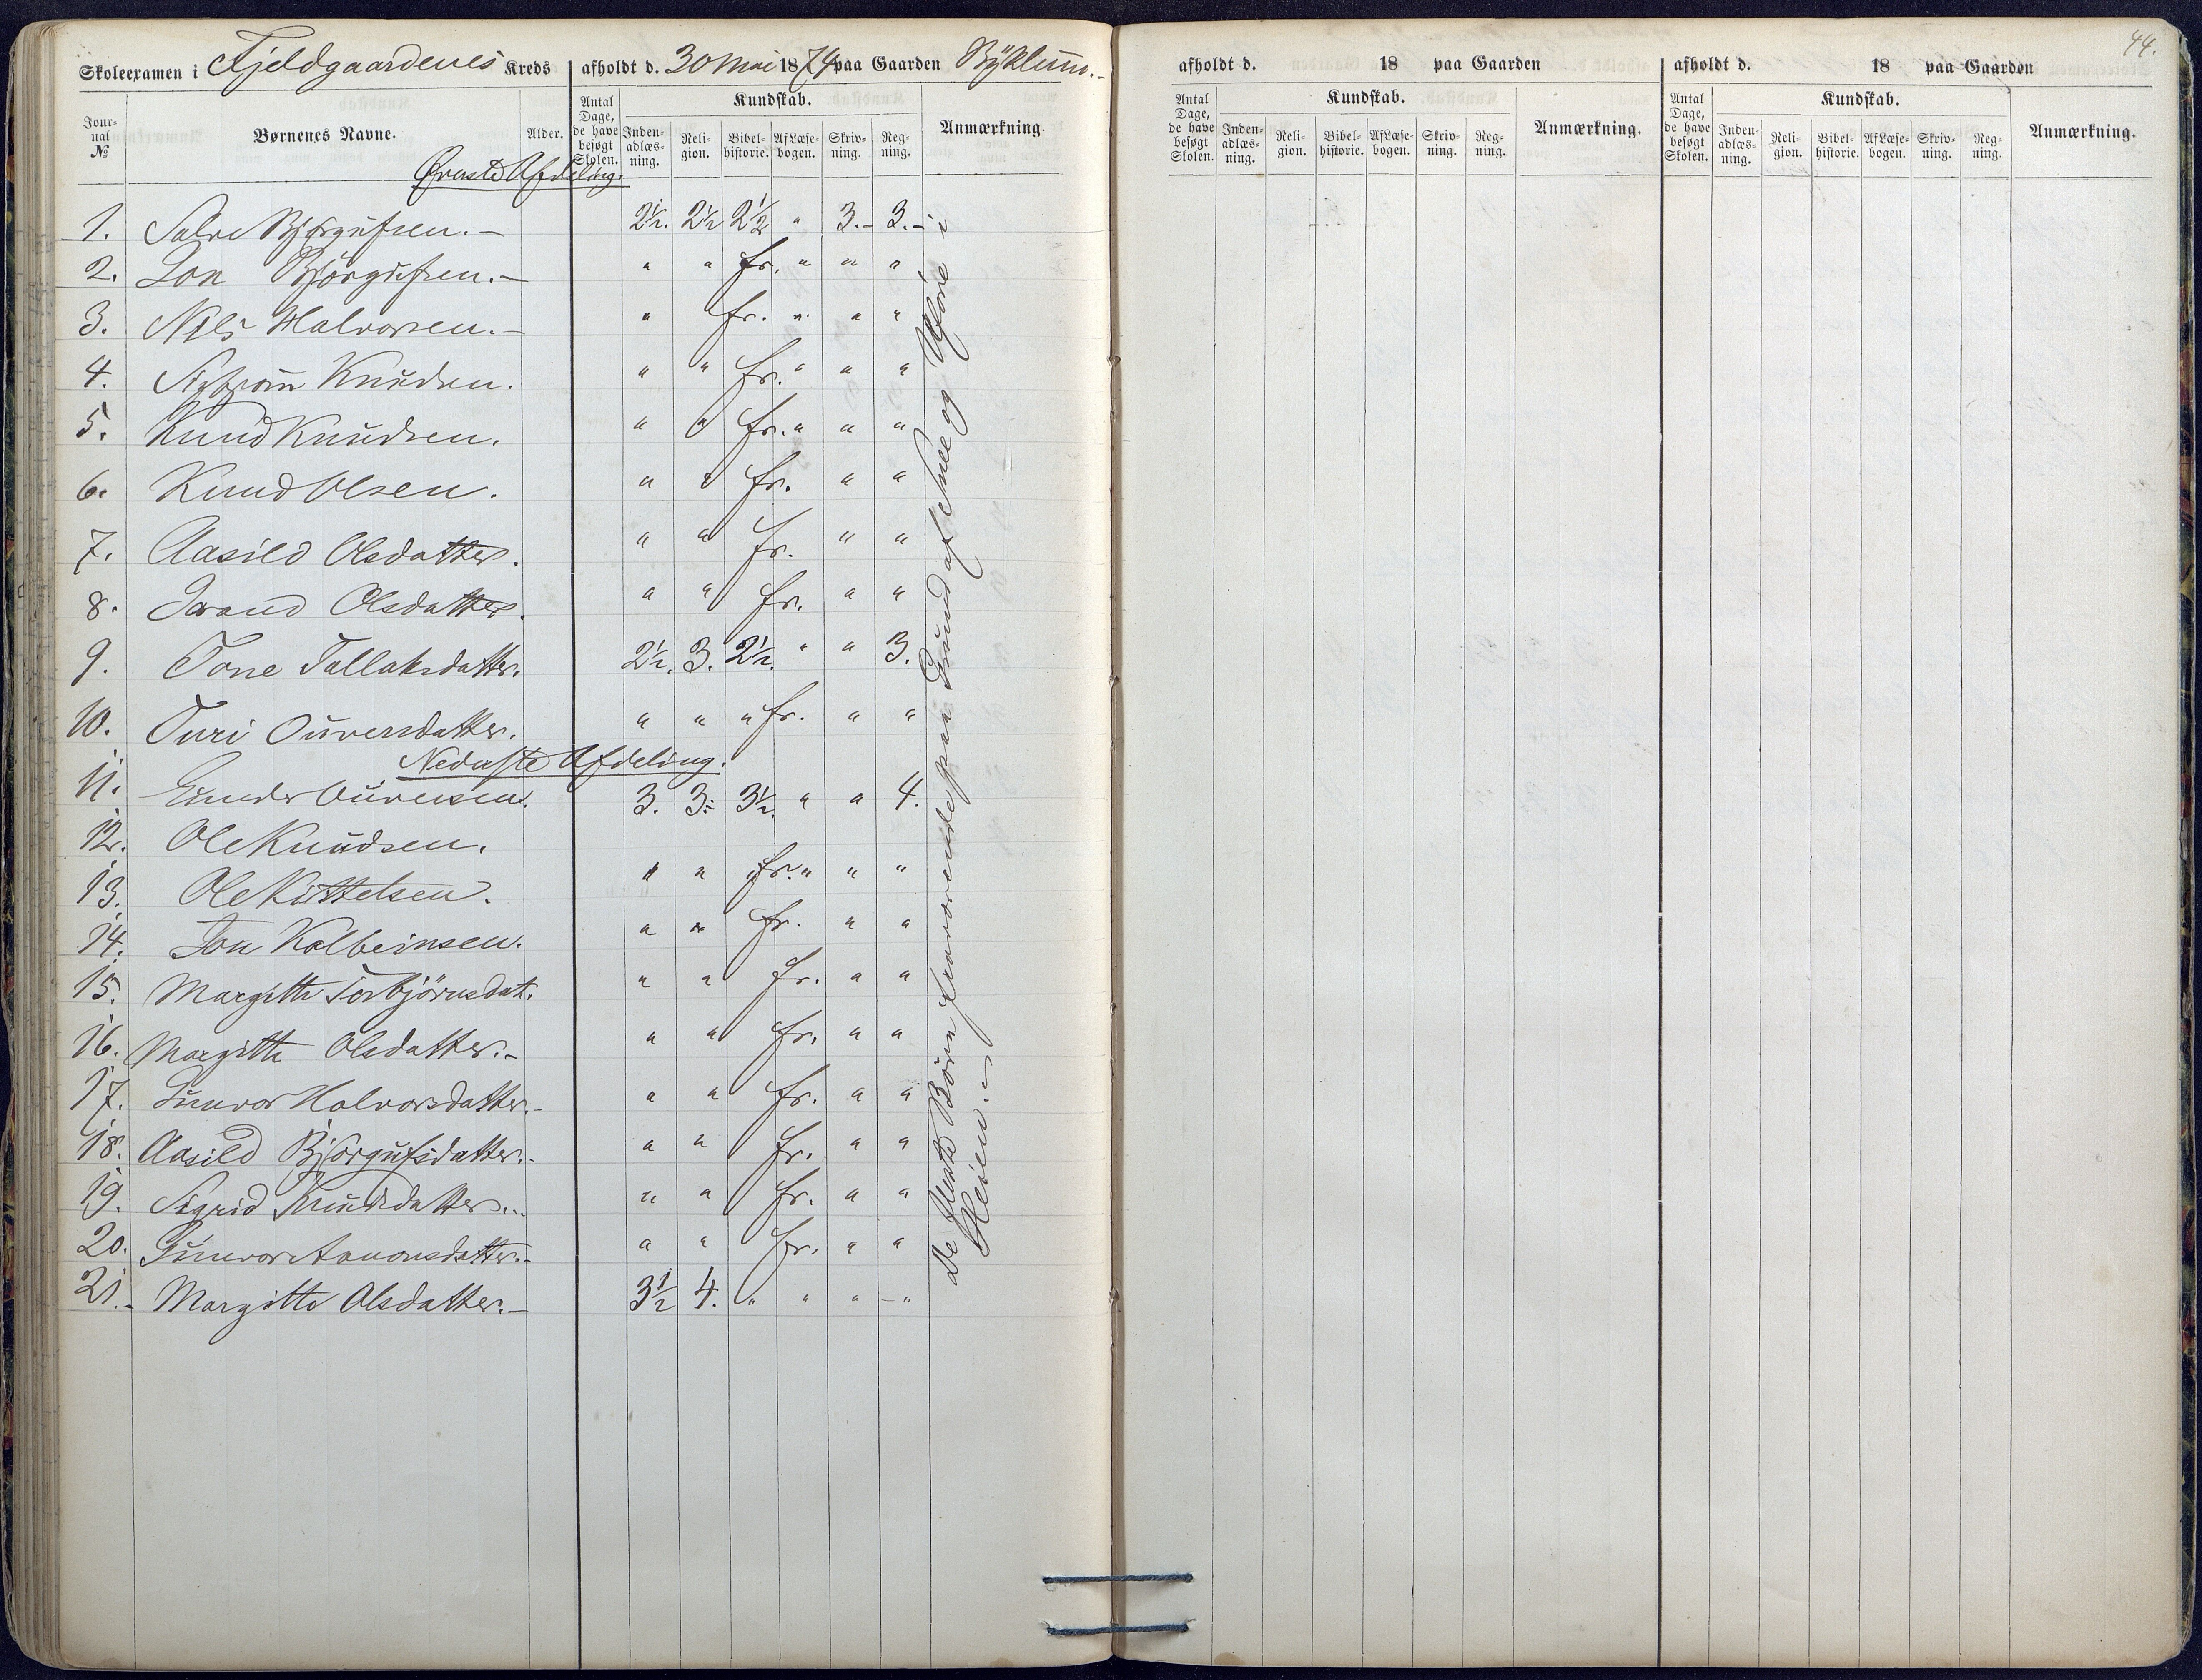 Skoleexamen i Fjeldgaardenes Kreds afholdt d. 30 Mai 1874 paa Gaarden Byklum.-
Jour-nal № Børnenes Navne. Alder. Antal Dage, de have besøgt Skolen. Kundskab. Inden-adlæs-ning. Reli-gion. Bibel-historie. Af Læse-bogen. Skriv-ning. Reg-ning. Anmærkning.
Øverste Afdeling.
1. Salve Bjørgufsen.- 2½. 2½ 2½ " 3.- 3.-
2. Jon Bjørgufsen.- " " fr. " " "
3. Nils Halvorsen.- " fr. " " "
4. Knudsen. " " fr. " " "
5. Knud Knudsen. " " fr. " " "
6. Knud Olsen. " " fr. " "
7. Aasild Olsdatter. " " fr. " "
8. Olsdatter. " " fr. " "
9. Tone Tallaksdatter. 2½. 3. 2½. " " 3.
10. Turi Ouversdatter. " " " fr. " "
Nederste Afdeling.
11. Gunder Ouversen. 3. 3.- 3½. " " 4.
12. Ole Knudsen.
13. Ole Kittelsen. " " " fr. " " "
14. Jon Kolbeinsen. " " fr. " "
15. Margitte Torbjörnsdat. " " fr. " "
16. Margitte Olsdatter.- " " fr. " "
17. Gunvor Halvorsdatter.- " " fr. " "
18. Aasild Bjørgufsdatter.- " " fr. " "
19. Sigrid Knudsdatter... " " fr. " "
20. Gunvor Aanonsdatter.- " " fr. " "
21.- Margitte Olsdatter.- 3½ 4. " " " - "
De fleste Børn fraværende paa Grund af Snee og Uføre i
Heien.-
44.
afholdt d. 18 paa Gaarden afholdt d. 18 paa Gaarden
Antal Dage, de have besøgt Skolen. Kundskab. Inden-adlæs-ning. Reli-gion. Bibel-historie. Af Læse-bogen. Skriv-ning. Reg-ning. Anmærkning. Antal Dage, de have besøgt Skolen. Kundskab. Inden-adlæs-ning. Reli-gion. Bibel-historie. Af Læse-bogen. Skriv-ning. Reg-ning. Anmærkning.